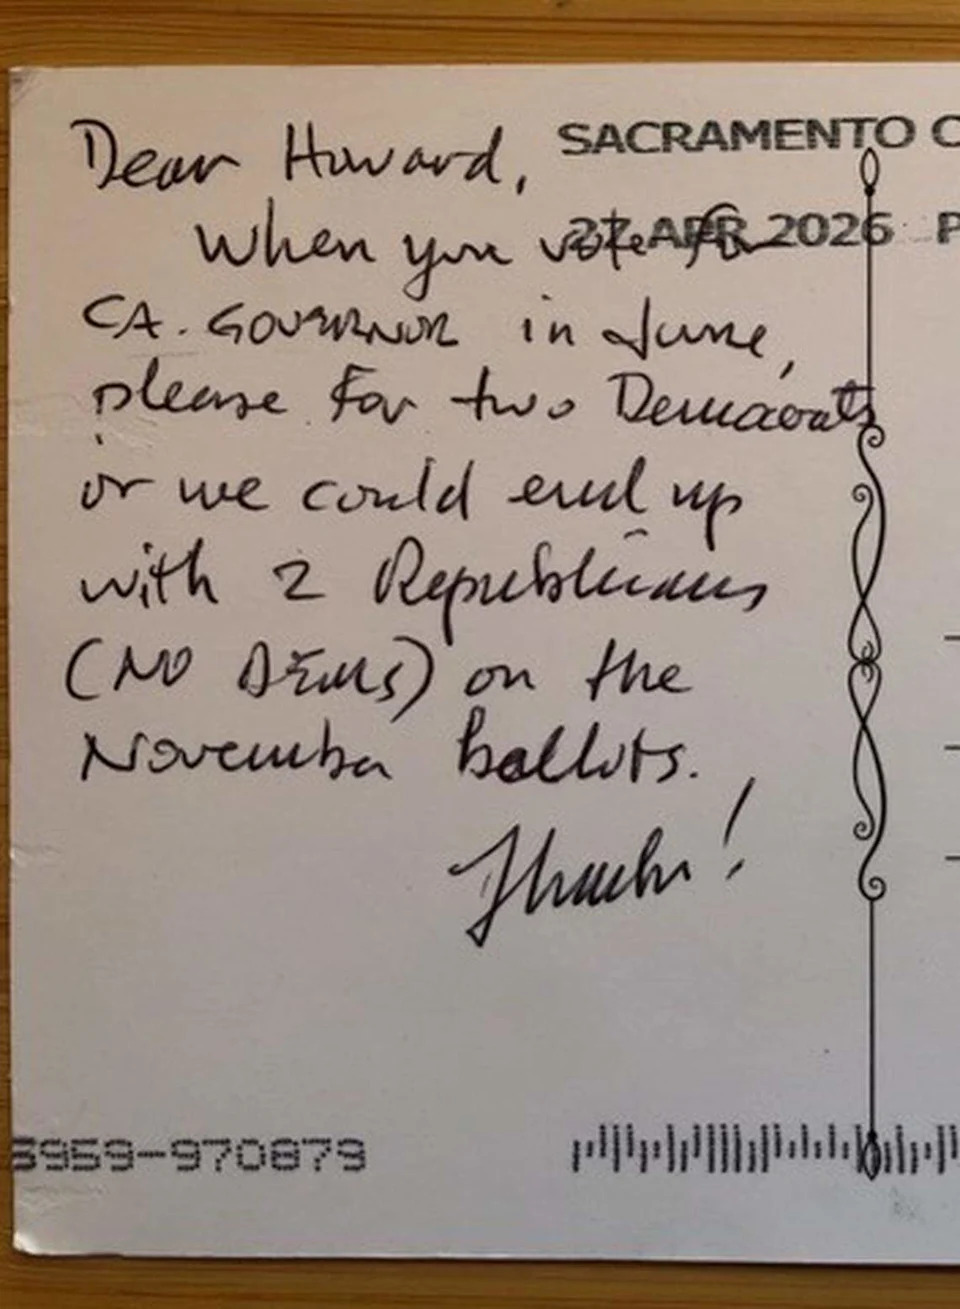 SACRAMENTO C
27 APR 2026 P
Dear Howard,
When you vote for
CA. GOVERNOR in June,
please for two Democrats
or we could end up
with 2 Republicans
(NO DEMS) on the
November ballots.
Thanks!
5959-970879